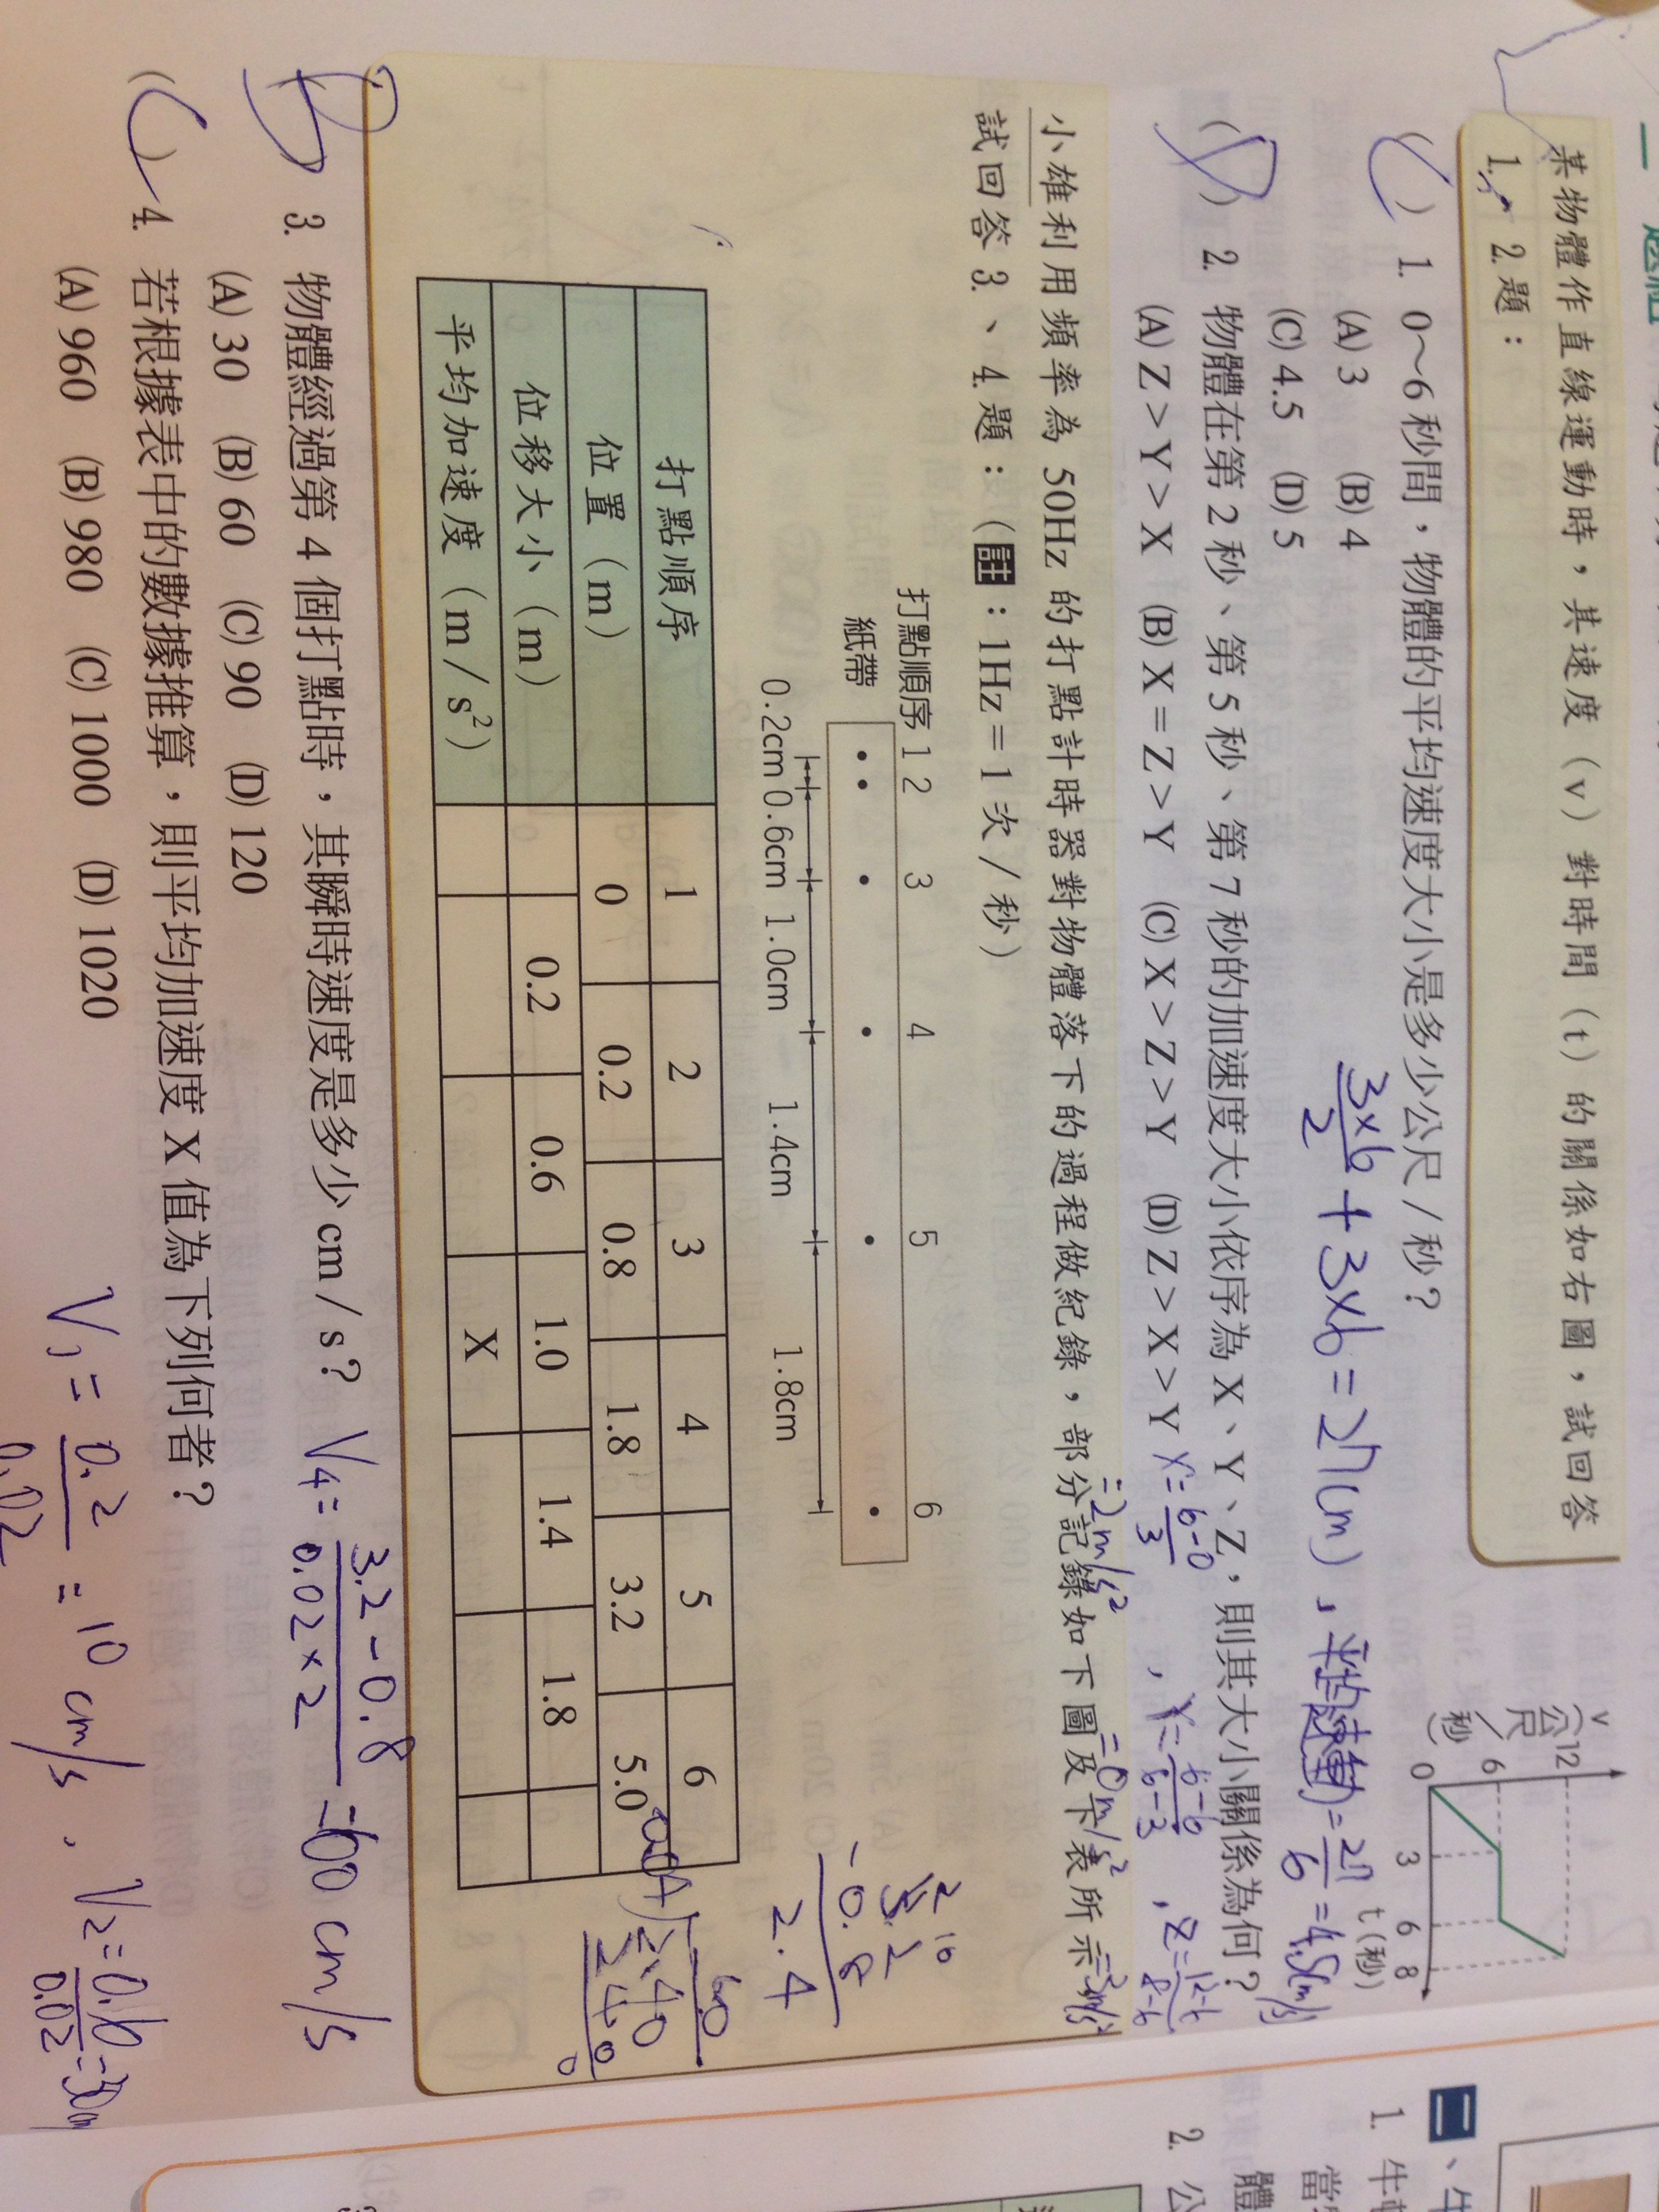 某物體作直線運動時，其速度（v）對時間（t）的關係如右圖，試回答
1.、2.題：
v
（公尺／秒）
12
6
0
3
6
8
t(秒)
(C) 1. 0～6秒間，物體的平均速度大小是多少公尺／秒？
(A) 3 (B) 4
(C) 4.5 (D) 5
3×6/2 + 3×6 = 27(m)，平均速度 = 27/6 = 4.5(m/s)
(D) 2. 物體在第2秒、第5秒、第7秒的加速度大小依序為X、Y、Z，則其大小關係為何？
(A) Z＞Y＞X (B) X＝Z＞Y (C) X＞Z＞Y (D) Z＞X＞Y
X = 6-0/3 = 2m/s²，Y = 6-6/6-3 = 0m/s²，Z = 12-6/8-6 = 3m/s²
小雄利用頻率為50Hz的打點計時器對物體落下的過程做紀錄，部分記錄如下圖及下表所示，
試回答3.、4.題：（註：1Hz＝1次／秒）
打點順序 1 2 3 4 5 6
紙帶
0.2cm 0.6cm 1.0cm 1.4cm 1.8cm
打點順序 1 2 3 4 5 6
位置（m） 0 0.2 0.8 1.8 3.2 5.0
位移大小（m） 0.2 0.6 1.0 1.4 1.8
平均加速度（m／s²） X
3.2
-0.8
2.4
60
0.04)2.40
240
0
(B) 3. 物體經過第4個打點時，其瞬時速度是多少cm／s？
V4 = 3.2-0.8/0.02×2 = 60 cm/s
(A) 30 (B) 60 (C) 90 (D) 120
(C) 4. 若根據表中的數據推算，則平均加速度X值為下列何者？
(A) 960 (B) 980 (C) 1000 (D) 1020
V1 = 0.2/0.02 = 10 cm/s，V2 = 0.6/0.02 = 30
1. 牛
2. 公